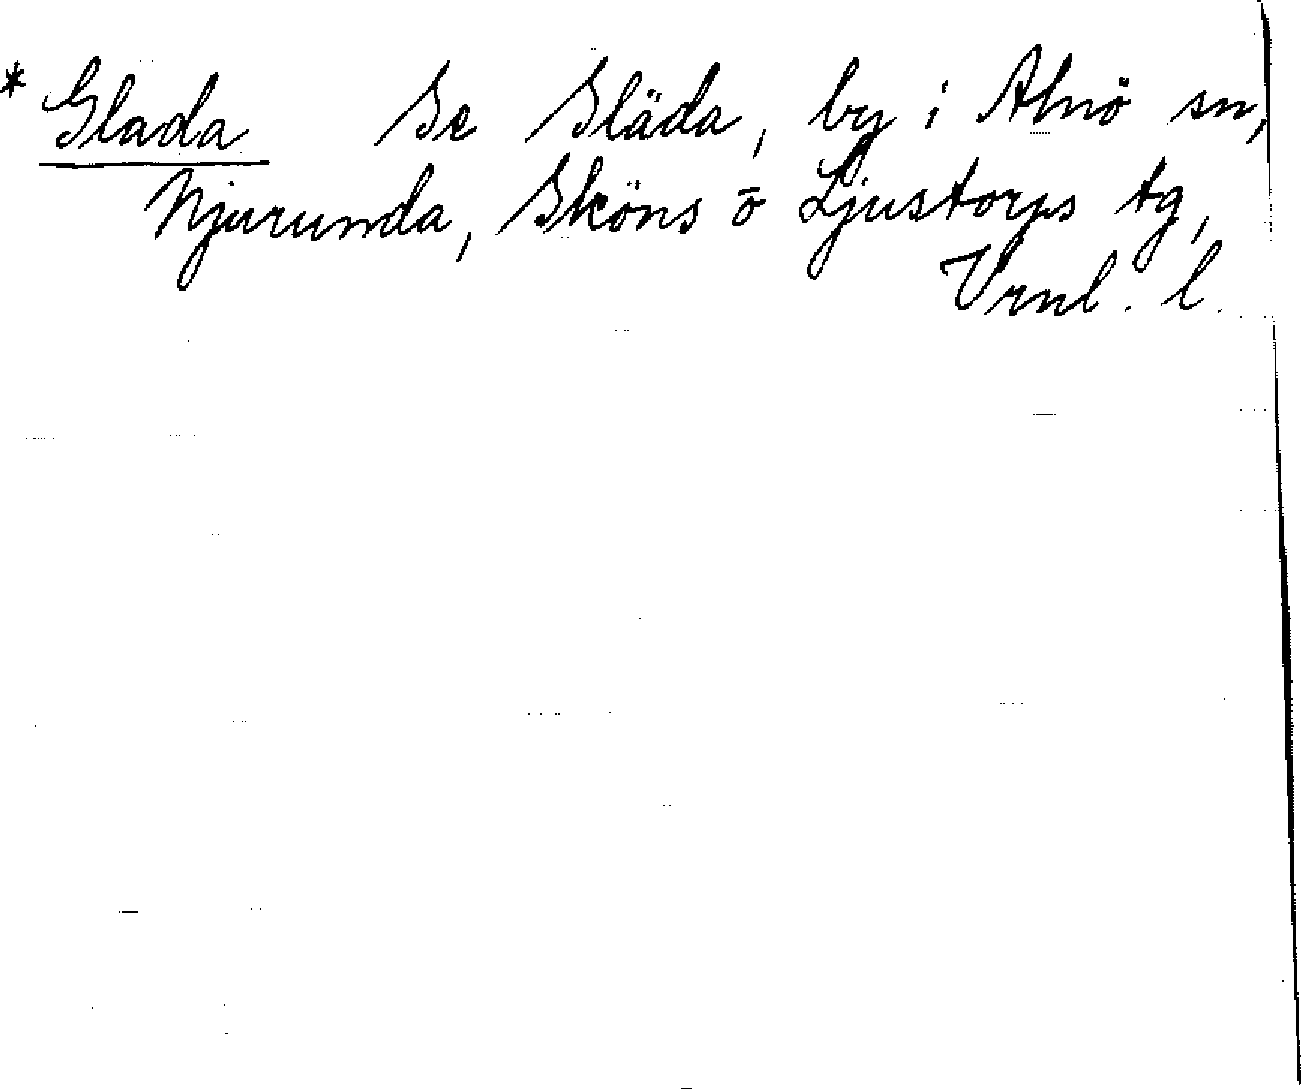 * Glada Se Släda, by i Alnö sn,
Njurunda, Sköns ō Ljustorps tg,
Vrnl. l.